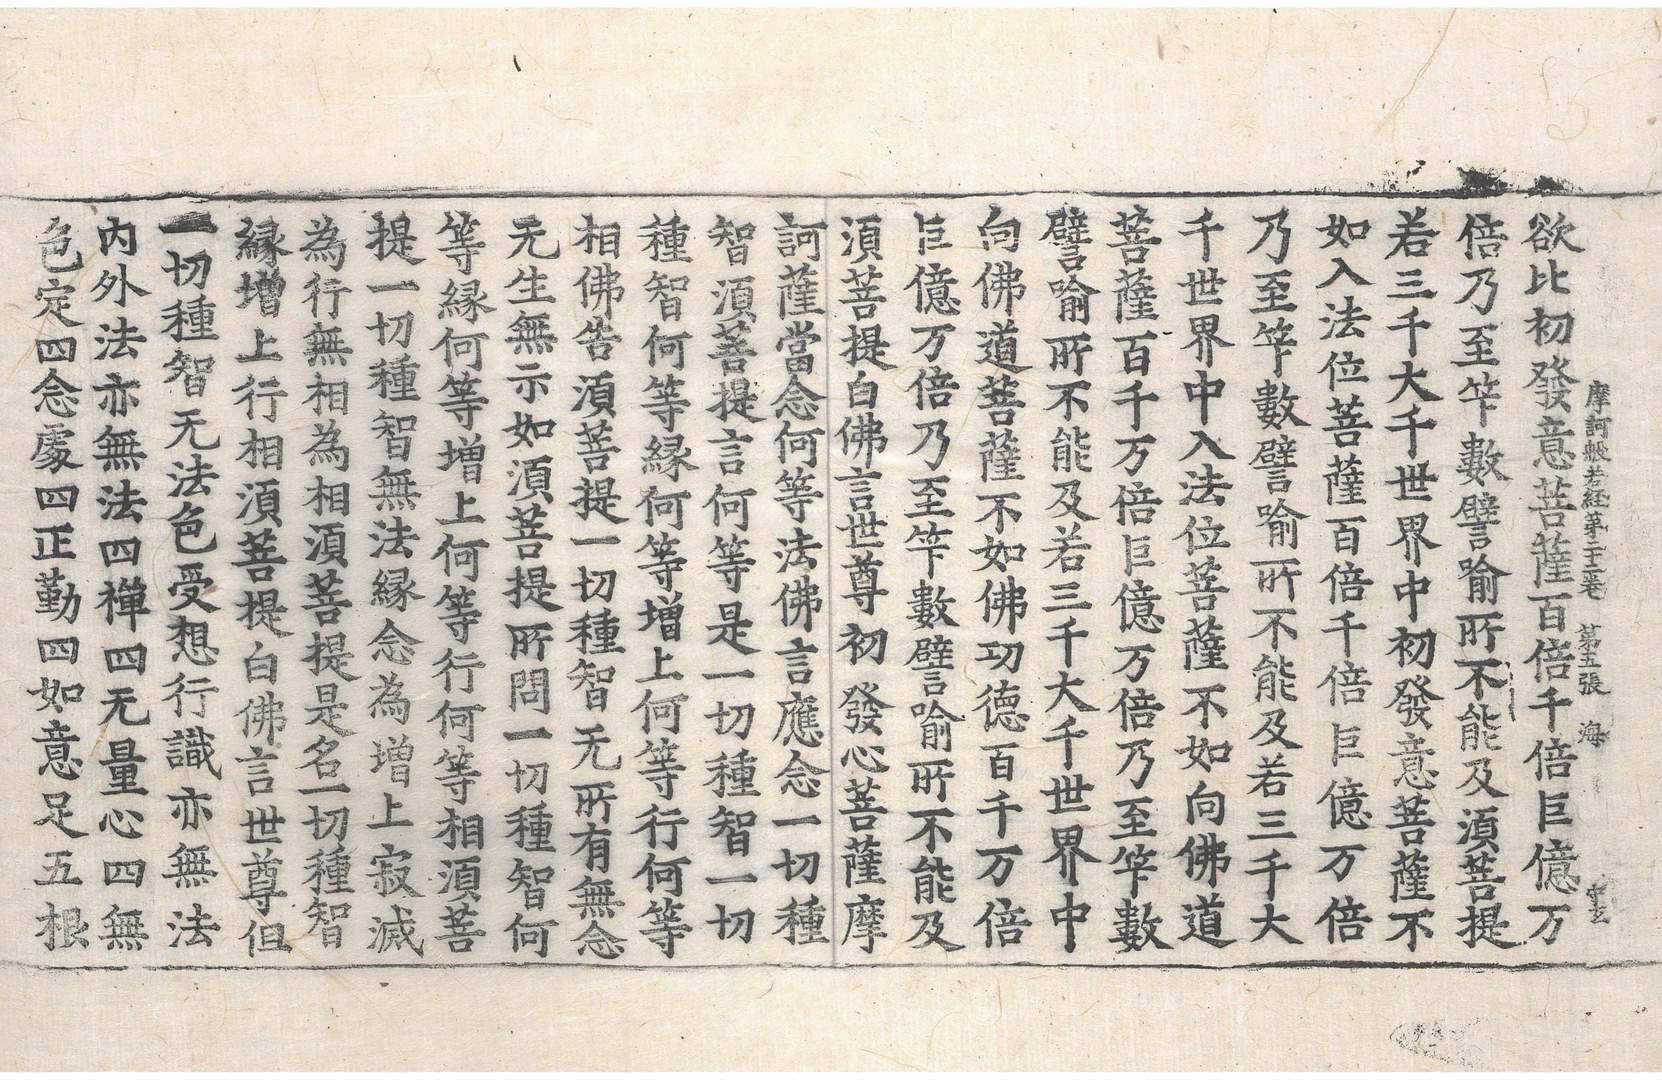 摩訶般若経苐二十二卷 第五張 海
欲比初發意菩薩百倍千倍巨億万
倍乃至筭數譬喻所不能及須菩提
若三千大千世界中初發意菩薩不
如入法位菩薩百倍千倍巨億万倍
乃至筭數譬喻所不能及若三千大
千世界中入法位菩薩不如向佛道
菩薩百千万倍巨億万倍乃至筭數
譬喻所不能及若三千大千世界中
向佛道菩薩不如佛功德百千万倍
巨億万倍乃至筭數譬喻所不能及
須菩提白佛言世尊初發心菩薩摩
訶薩當念何等法佛言應念一切種
智須菩提言何等是一切種智一切
種智何等縁何等增上何等行何等
相佛告須菩提一切種智无所有無念
无生無示如須菩提所問一切種智何
等縁何等增上何等行何等相須菩
提一切種智無法縁念為增上寂滅
為行無相為相須菩提是名一切種智
縁增上行相須菩提白佛言世尊但
一切種智无法色受想行識亦無法
內外法亦無法四禪四无量心四無
色定四念處四正勤四如意足五根